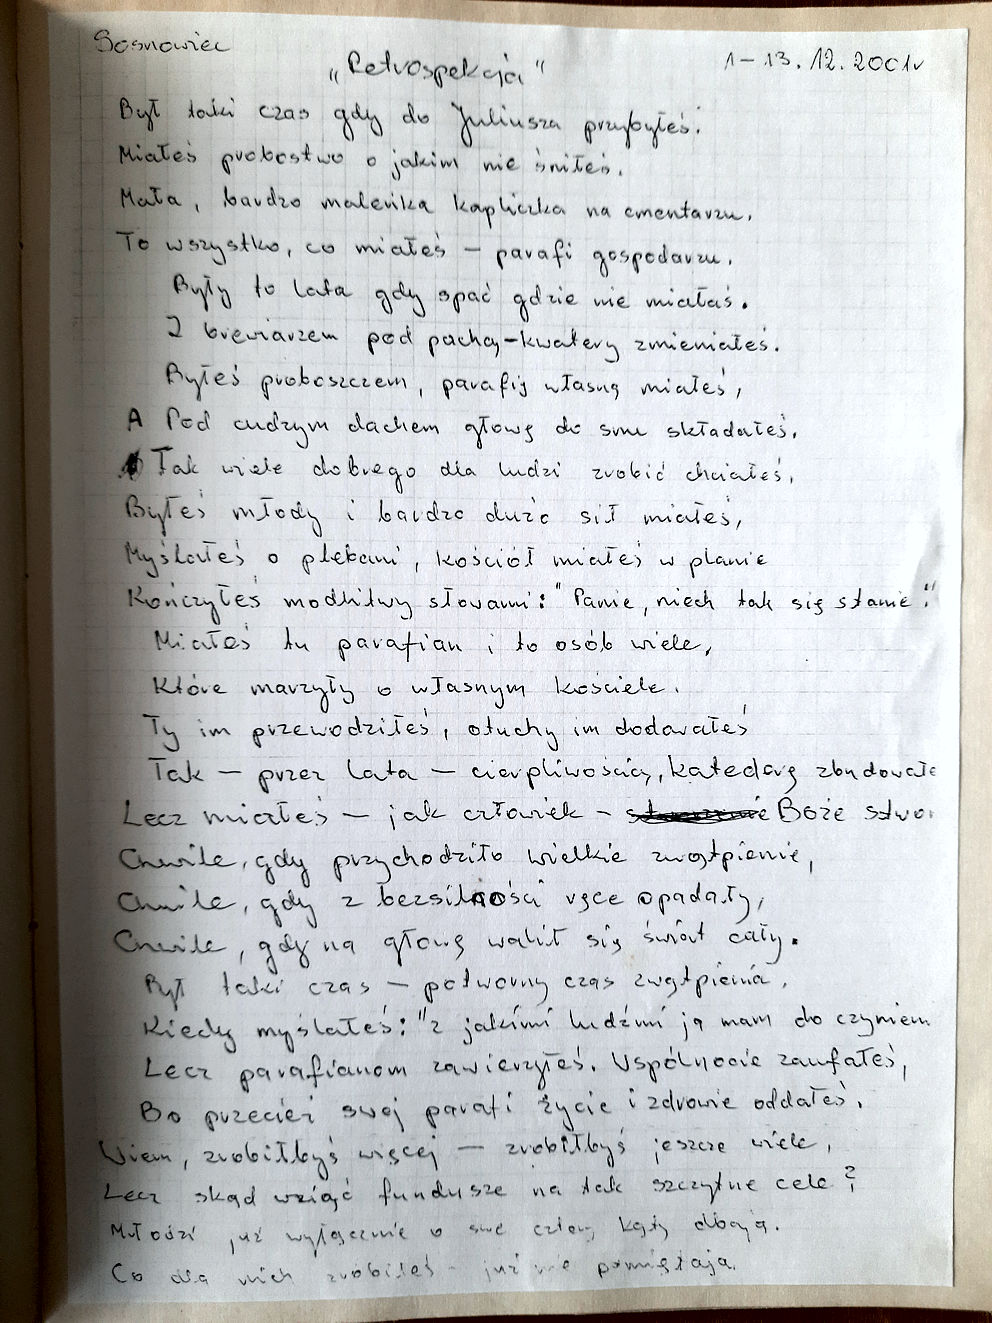 Sosnowiec
„Retrospekcja" 1-13.12.2001r
Był taki czas gdy do Juliusza przybyłeś.
Miałeś probostwo o jakim nie śniłeś.
Mała, bardzo maleńka kapliczka na cmentarzu.
To wszystko, co miałeś – parafi gospodarzu.
Były to lata gdy spać gdzie nie miałaś.
I brewiarzem pod pachą-kwatery zmieniałeś.
Byłeś proboszczem, parafię własną miałeś,
A Pod cudzym dachem głowę do snu składałeś.
Tak wiele dobrego dla ludzi zrobić chciałeś,
Byłeś młody i bardzo dużo sił miałeś,
Myślałeś o plebani, kościół miałeś w planie
Kończyłeś modlitwy słowami: "Panie, niech tak się stanie."
Miałeś tu parafian i to osób wiele,
Które marzyły o własnym kościele.
Ty im przewodziłeś, otuchy im dodawałeś
Tak – przez lata – cierpliwością, katedarę zbudowałe
Lecz miałeś – jak człowiek – Boże stwo
Chwile, gdy przychodziło wielkie zwątpienie,
Chwile, gdy z bezsilności ręce opadały,
Chwile, gdy na głowę walił się świat cały.
Był taki czas – potworny czas zwątpienia,
Kiedy myślałeś: "z jakimi ludźmi ja mam do czynien
Lecz parafianom zawierzyłeś. Wspólnocie zaufałeś,
Bo przecież swej parafi życie i zdrowie oddałeś.
Wiem, zrobiłbyś więcej – zrobiłbyś jeszcze wiele,
Lecz skąd wziąć fundusze na tak szczytne cele?
Młodzi już wyłącznie o swe cztery kąty dbają.
Co dla nich zrobiłeś – już nie pamiętają.